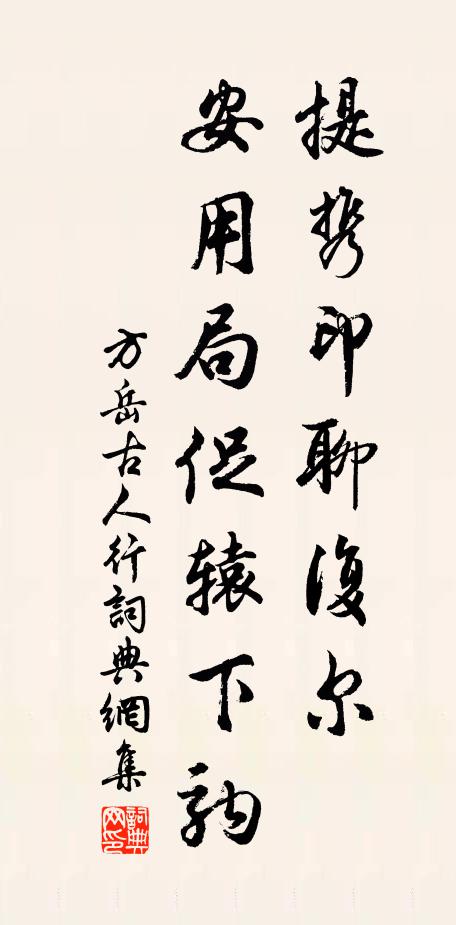 提携印聊復尔
安用局促辕下駒
方岳古人行詞典網集
詞典網印